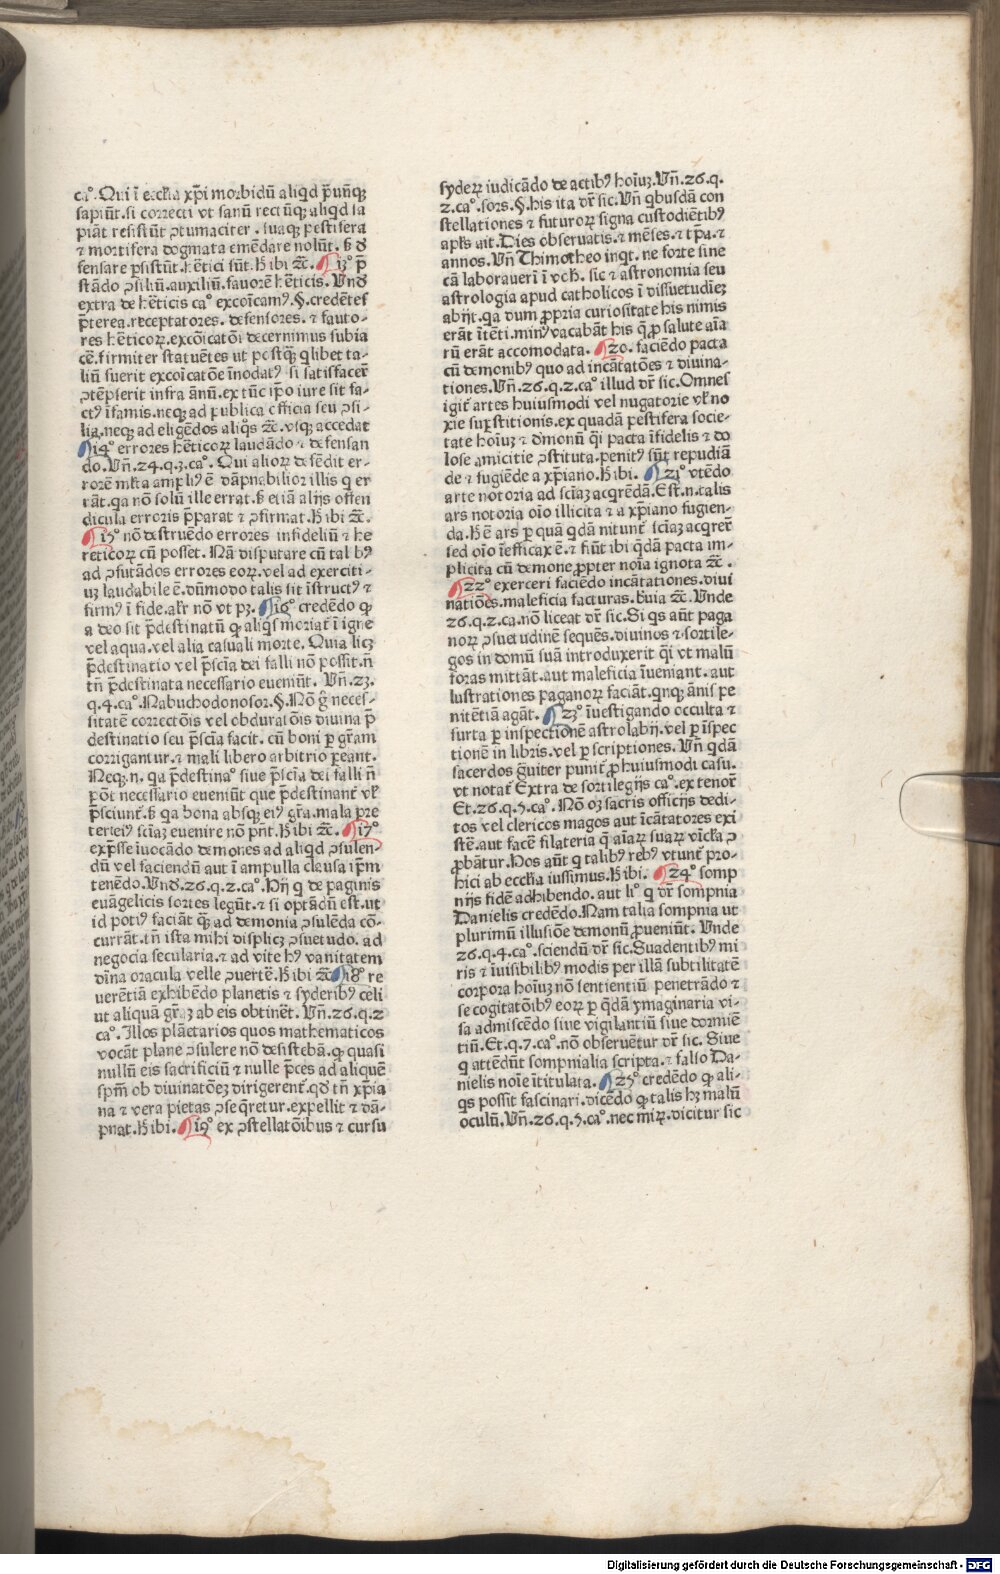 ca°. Qui ī ecclīa xp̄i morbidū aliqd p̄uūqꝫ
sapiūt. si correcti vt sanū rectūqꝫ aliqd sa
piāt resistūt ꝯtumaciter. suaqꝫ pestifera
⁊ mortifera dogmata emēdare nolūt. ß d̄
fensare ꝑsistūt. hētici sūt. H̄ ibi ⁊c̄. 13° p̄
stādo ꝯsiliū. auxiliū. fauorē hēticis. Vnd̄
extra de hēticis ca° excoīcamꝰ. §. credētes
p̄terea. receptatores. defensores. ⁊ fauto-
res hēticoꝝ. excōicatōi decernimus subia
cē. firmiter statuētes ut postqꝫ qlibet ta-
liū fuerit excoīcatōe īnodatꝰ si satisfacer̄
ꝯtēpserit infra ānū. ex tūc ip̄o iure sit fa-
ctꝰ īfamis. neqꝫ ad publica officia seu ꝯsi-
lia. neqꝫ ad eligēdos aliqs ⁊c̄. vsqꝫ accedat
14° errores hēticoꝝ laudādo ⁊ defensan
do. Vn̄. 24. q. 3. ca°. Qui alioꝝ defēdit er-
rorē ml̄ta ampliꝰ ē dāpnabilior illis q er
rāt. qa nō solū ille errat. ß etiā alijs offen
dicula erroris p̄parat ⁊ ꝯfirmat. H̄ ibi ⁊c̄.
15° nō destruēdo errores infideliū ⁊ he
reticoꝝ cū posset. Nā disputare cū tal bꝰ
ad ꝯfutādos errores eoꝝ. vel ad exerciti-
uꝫ laudabile ē. dūmodo talis sit īstructꝰ ⁊
firmꝰ ī fide. alr̄ nō vt pꝫ. 16° credēdo qꝫ
a deo sit p̄destinatū qꝫ aliqs moriat̄ ī igne
vel aqua. vel alia casuali morte. Quia licꝫ
p̄destinatio vel p̄scīa dei falli nō possit. n̄
tn̄ p̄destinata necessario eueniūt. Vn̄. 23.
q. 4. ca°. Nabuchodonosor. §. Nō ḡ neces-
sitatē correctōis vel obduratōis diuina p̄
destinatio seu p̄scīa facit. cū boni ꝑ gr̄am
corrigantur. ⁊ mali libero arbitrio ꝑeant.
Neqꝫ. n. qa p̄destina° siue p̄scīa dei falli n̄
p̄ōt necessario eueniūt que p̄destinant̄ vl̄
p̄sciunt̄. ß qa bona absqꝫ eiꝰ gr̄a. mala pre
ter eiꝰ sciaꝫ euenire nō pn̄t. H̄ ibi ⁊c̄. 17°
exp̄sse īuocādo demones ad aliqd ꝯsulen-
dū vel faciendū aut ī ampulla clausa ip̄m
tenēdo. Vnd̄. 26. q. 2. ca°. Hij q de paginis
euāgelicis sortes legūt. ⁊ si optādū est. ut
id potiꝰ faciāt qꝫ ad demonia ꝯsulēda cō-
currāt. tn̄ ista mihi displicꝫ ꝯsuetudo. ad
negocia secularia. ⁊ ad vite hꝰ vanitatem
dīna oracula velle ꝯuertē. H̄ ibi ⁊c̄ 18° re
uerētiā exhibēdo planetis ⁊ syderibꝰ celi
ut aliquā gr̄aꝫ ab eis obtinēt. Vn̄. 26. q. 2
ca°. Illos plāetarios quos mathematicos
vocāt plane ꝯsulere nō desistebā. qꝫ quasi
nullū eis sacrificiū ⁊ nulle p̄ces ad aliquē
sp̄m ob diuinatōeꝫ dirigerent̄. qd̄ tn̄ xp̄ia
na ⁊ vera pietas ꝯseq̄retur. expellit ⁊ dā-
pnat. H̄ ibi. 19° ex ꝯstellatōibus ⁊ cursu
syderꝝ iudicādo de actibꝰ hoīuꝫ. Vn̄. 26. q.
2. ca°. sors. §. his ita dr̄ sic. Vn̄ qbusdā con
stellationes ⁊ futuroꝝ signa custodiētibꝰ
apl̄s ait. Dies obseruatis. ⁊ mēses. ⁊ tp̄a. ⁊
annos. Vn̄ Thimotheo inqt. ne forte sine
cā laborauerī ī vob̄. sic ⁊ astronomia seu
astrologia apud catholicos ī dissuetudīeꝫ
abijt. qa dum ꝓpria curiositate his nimis
erāt ītēti. minꝰ vacabāt his q ꝓ salute aīa
rū erāt accomodata. 20. faciēdo pacta
cū demonibꝰ quo ad incātatōes ⁊ diuina-
tiones. Vn̄. 26. q. 2. ca° illud dr̄ sic. Omnes
igit̄ artes huiusmodi vel nugatorie vl̄ no
xie suꝑstitionis. ex quadā pestifera socie-
tate hoīuꝫ ⁊ d̄monū q̄i pacta īfidelis ⁊ do
lose amicitie ꝯstituta. penitꝰ sūt repudiā
de ⁊ fugiēde a xp̄iano. H̄ ibi. 21° vtēdo
arte notoria ad sciaꝫ acqrēdā. Est. n. talis
ars notoria oīo illicita ⁊ a xp̄iano fugien-
da. H̄ ē ars ꝑ quā qdā nitunt̄ sciaꝫ acqrer̄
sed oīo īefficax ē. ⁊ fiūt ibi qdā pacta im-
plicita cū demone ꝓpter noīa ignota ⁊c̄.
22° exerceri faciēdo incātationes. diui
natiōes. maleficia facturas. breuia ⁊c̄. Vnde
26. q. 2. ca. nō liceat dr̄ sic. Si qs aūt paga
noꝝ ꝯsuetudinē sequēs. diuinos ⁊ sortile-
gos in domū suā introduxerit q̄i vt malū
foras mittāt. aut maleficia īueniant. aut
lustrationes paganoꝝ faciāt. qnqꝫ ānis pe
nitētiā agāt. 23° īuestigando occulta ⁊
furta ꝑ inspectionē astrolabij. vel ꝑ īspec
tionē in libris. vel ꝑ scriptiones. Vn̄ qdā
sacerdos ḡuiter punit̄ ꝓ huiusmodi casu.
vt notat̄ Extra de sortilegijs ca°. ex tenor̄
Et. 26. q. 5. ca°. Nō oꝫ sacris officijs dedi-
tos vel clericos magos aut īcātatores exi
stē. aut facē filateria q̄ aīaꝝ suaꝝ vīcl̄a ꝯ
ꝓbātur. Hos aūt q talibꝰ rebꝰ vtunt̄ pro-
hici ab ecclīa iussimus. H̄ ibi. 24° somp
nijs fidē adhibendo. aut li° q dr̄ sompnia
Danielis credēdo. Nam talia sompnia ut
plurimū illusiōe demonū ꝓueniūt. Vnde
26. q. 4. ca°. sciendū dr̄ sic. Suadentibꝰ mi
ris ⁊ īuisibilibꝰ modis per illā subtilitatē
corpora hoīuꝫ nō sentientiū penetrādo ⁊
se cogitatōibꝰ eoꝝ ꝑ qdā ymaginaria vi-
sa admiscēdo siue vigilantiū siue dormiē
tiū. Et. q. 7. ca°. nō obseruētur dr̄ sic. Siue
q attēdūt sompnialia scripta. ⁊ falso Da-
nielis noīe ītitulata. 25° credēdo qꝫ ali-
qs possit fascinari. dicēdo qꝫ talis hꝫ malū
oculū. Vn̄. 26. q. 5. ca°. nec miꝝ. dicitur sic
Digitalisierung gefördert durch die Deutsche Forschungsgemeinschaft - DFG